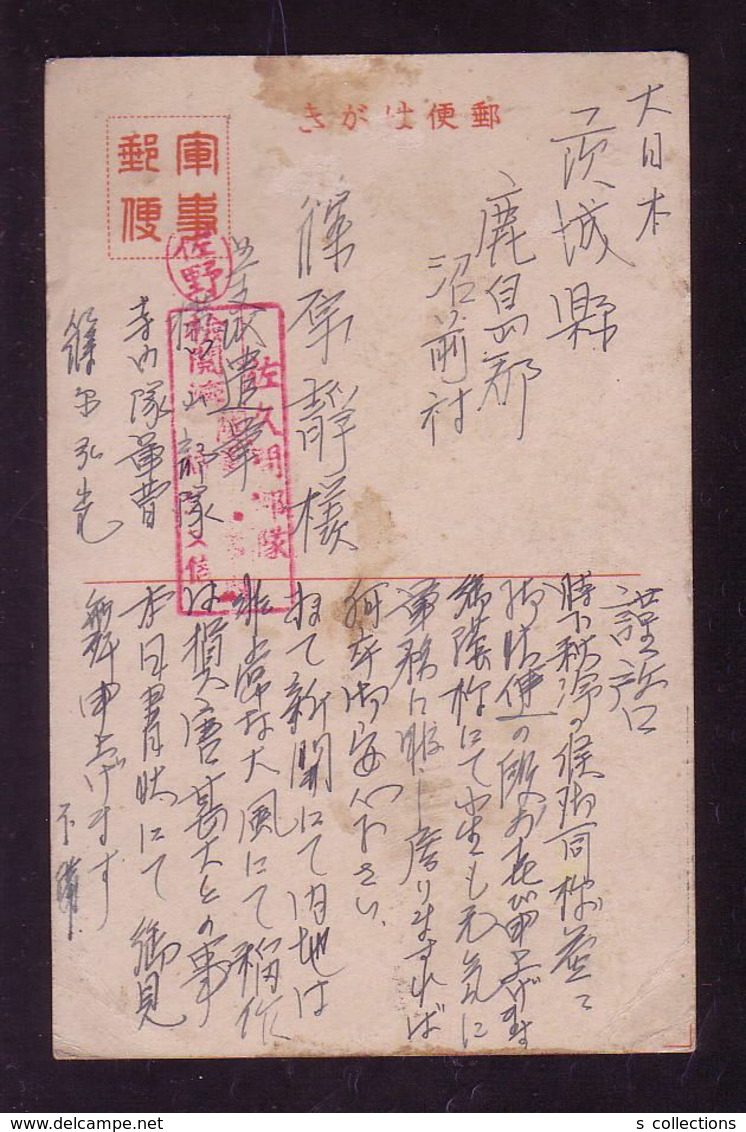 郵便はがき
軍事
郵便
大日本
茨城縣
鹿島郡
沼前村
篠原靜様
北支派遣軍
横山部隊
寺内隊軍曹
篠原弘光
佐野
佐久間部隊
謹啓
時下秋冷の候御一同様益々
御清健の段お喜び申上げます
御蔭様にて小生も元気に
軍務に服し居りますれば
何卒御安心下さい
扨て新聞にて内地は
非常な大風にて稲作
は損害甚大との事
本日書状にて御見
舞申上げます
不備
s collections